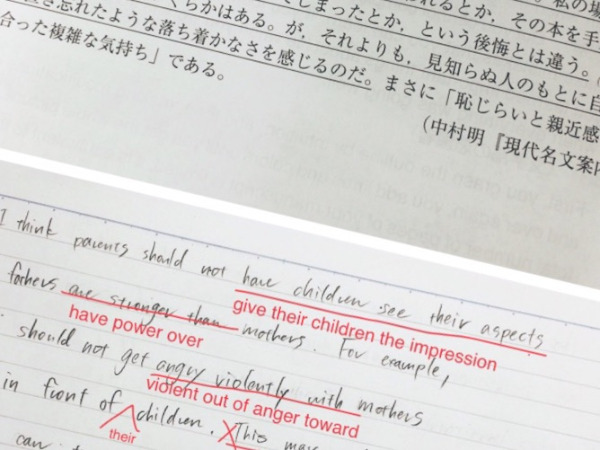 しまったとか、という後悔とは違う。
れるとか、その本を手
くらかはある。が、それよりも、見知らぬ人のもとに自
忘れたような落ち着かなさを感じるのだ。まさに「恥じらいと親近感
合った複雑な気持ち」である。
(中村明『現代名文案内
I think parents should not have children see their aspects
give their children the impression
fathers are stronger than mothers. For example,
have power over
should not get angry violently with mothers
violent out of anger toward
in front of children. This may
their
can